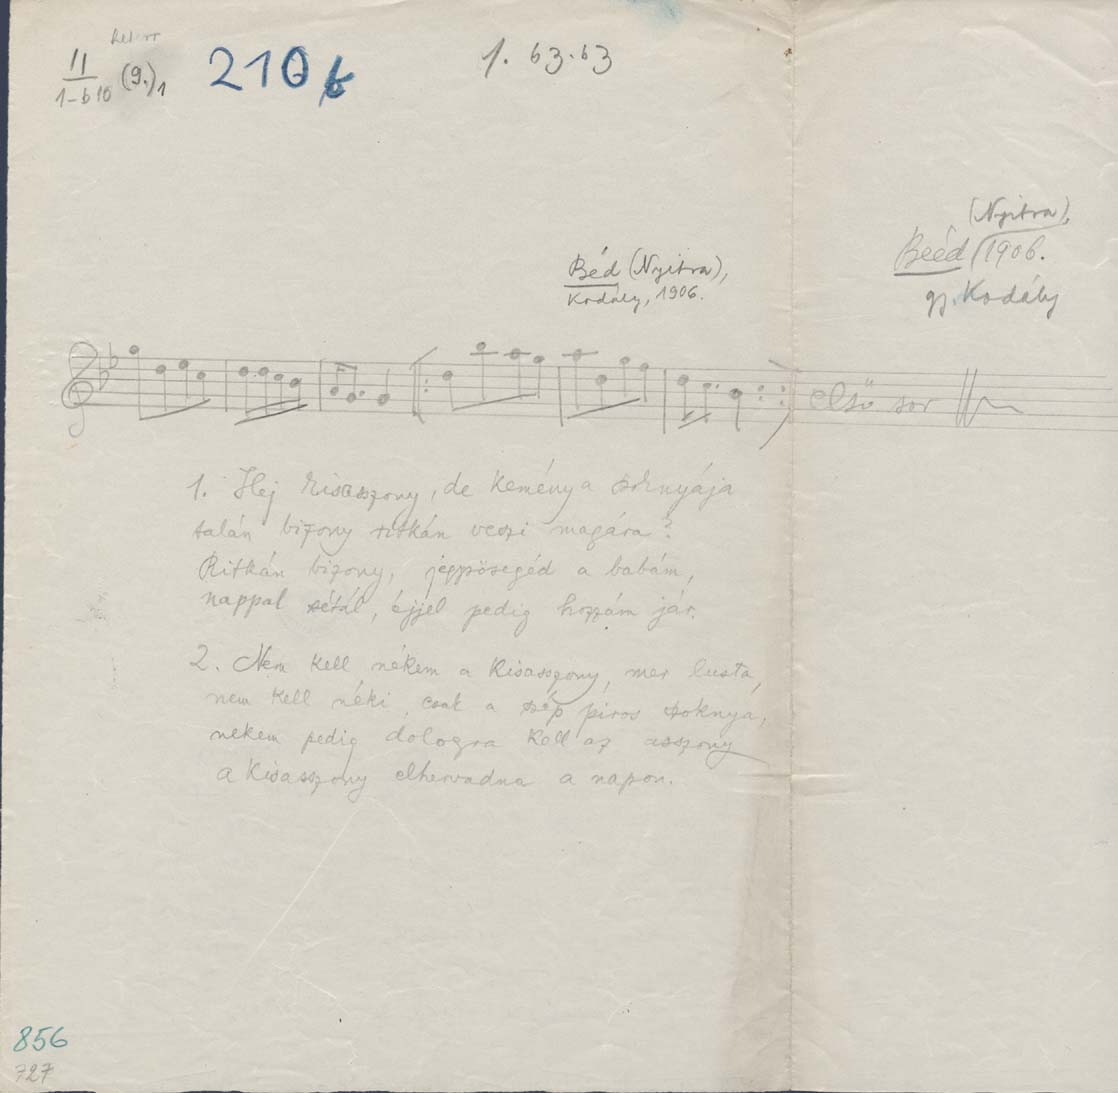 II
1-b10 (9.)1
210b
1. b3·b3
(Nyitra),
Beéd 1906.
gy. Kodály
Béd (Nyitra),
Kodály, 1906.
első sor
1. Hej kisasszony, de kemény a szoknyája
talán bizony ritkán veszi magára?
Ritkán bizony, jegyzősegéd a babám,
nappal sétál, éjjel pedig hozzám jár.
2. Nem kell nékem a kisasszony, mer lusta,
nem kell néki, csak a szép piros szoknya,
nekem pedig dologra kell az asszony
a kisasszony elhervadna a napon.
856
727